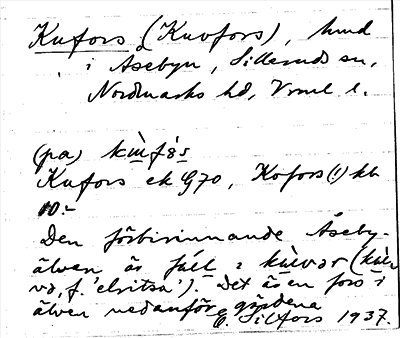 Kufors (Kuvfors), hmd
i Åsebyn, Sillerud sn,
Nordmarks hd, Vrml l.
(på) kùfòs
Kufors ek G70, Kofors(!) kb
10:-
Den förbirinnande Åseby-
älven är full i kùlvər (kùl-
və, f. 'elritsa'). Det är en fors i
älven nedanför gårdena
E. Silfors 1937.